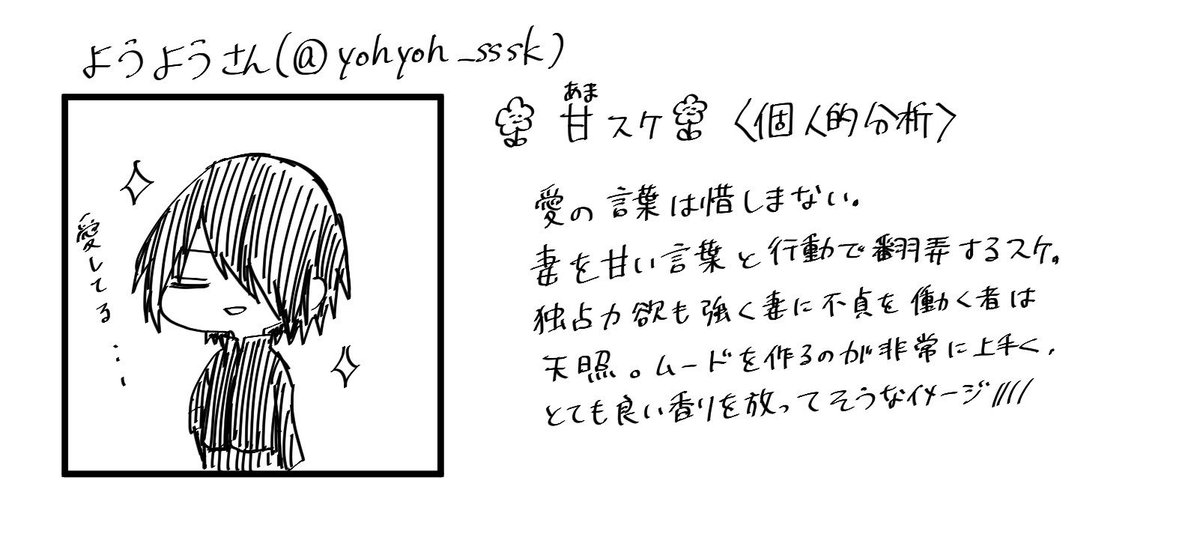 ようようさん(@yohyoh_sssk)
甘スケ〈個人的分析〉
あま
愛してる...
愛の言葉は惜しまない。
妻を甘い言葉と行動で翻弄するスケ。
独占力欲も強く妻に不貞を働く者は
天照。ムードを作るのが非常に上手く、
とても良い香りを放ってそうなイメージ////